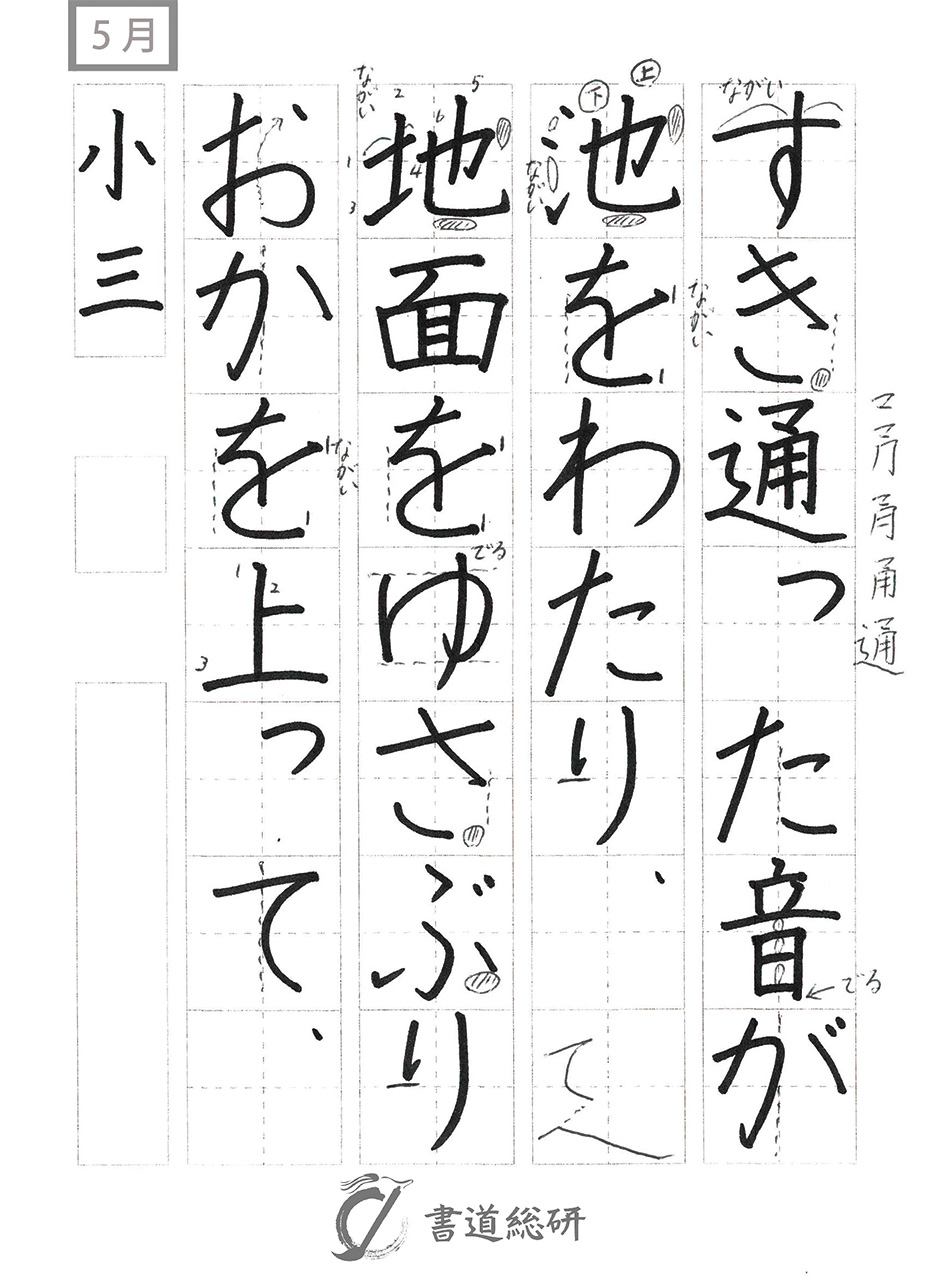 5月
すき通った音が
池をわたり、
地面をゆさぶり
おかを上って、
小三
ながい
上
下
ながい
ながい
ながい
ながい
でる
でる
通
1
2
3
4
5
6
1
2
3
書道総研